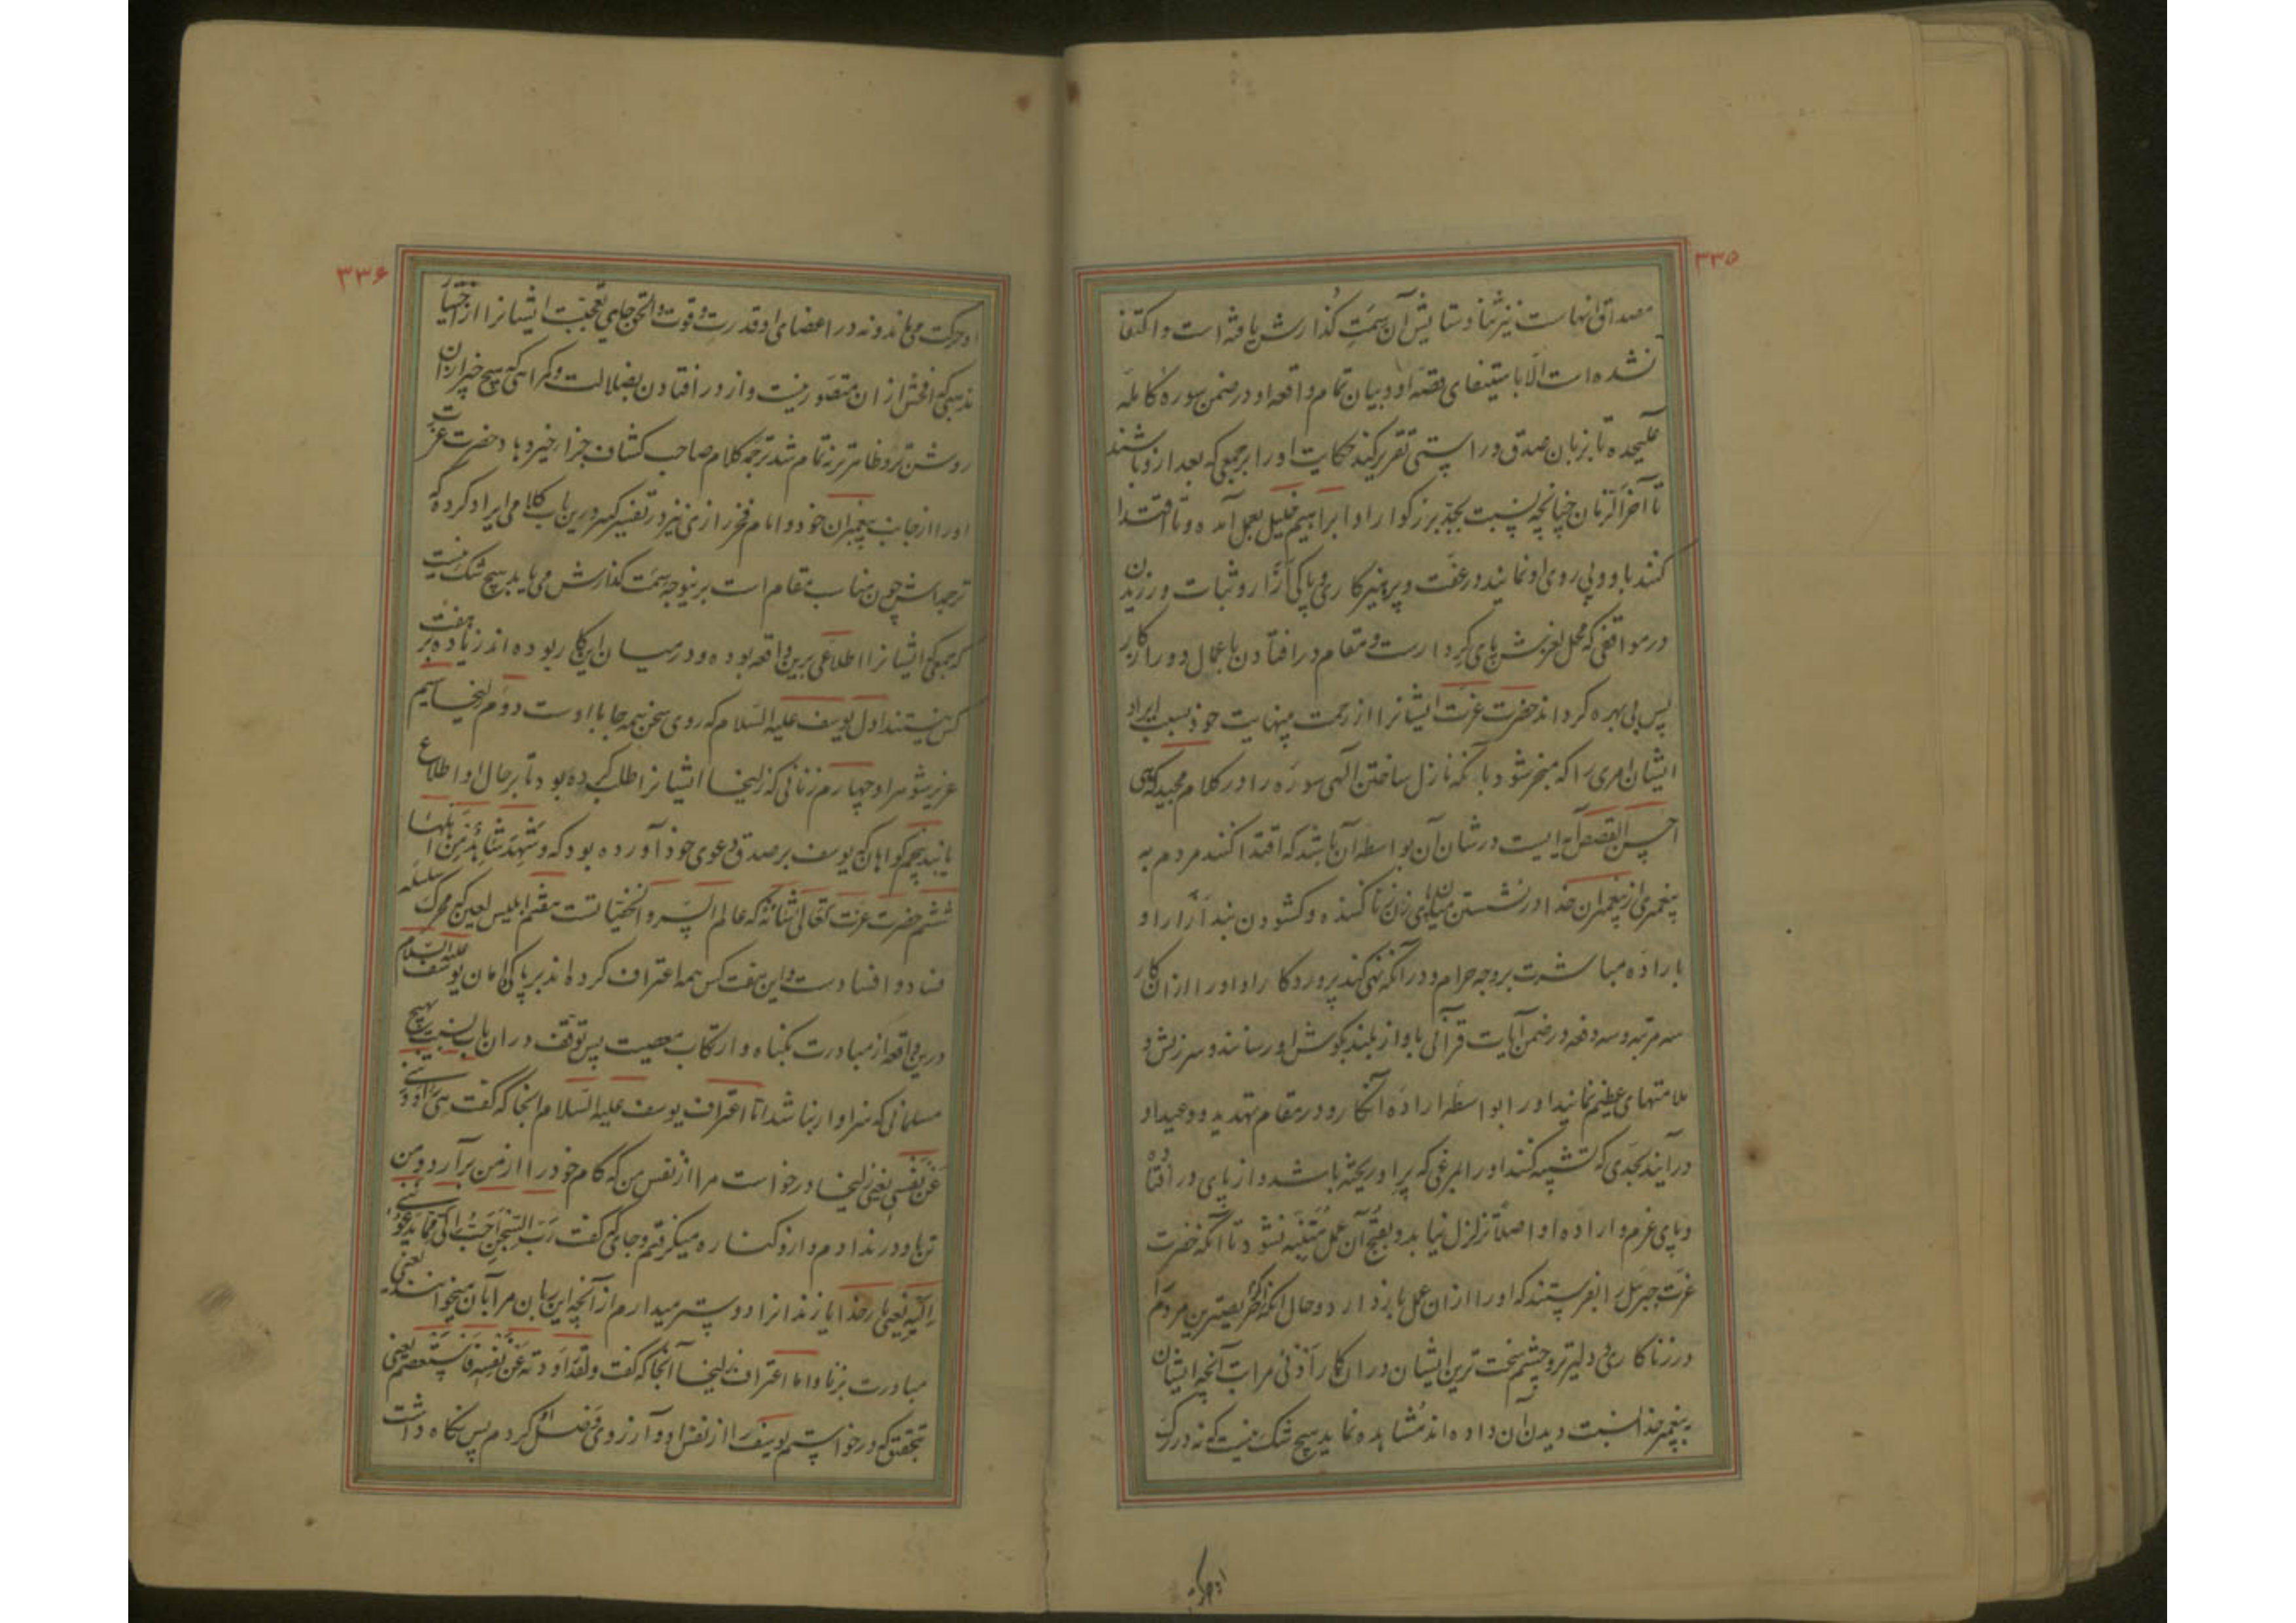 ۳۳۵
مصداق آنهاست نیز ثنا و ستایش آن سمت گذارش یافته است و اکتفا
نشده است الا باستیفای قصه او و بیان تمام واقعه او در ضمن سوره کامله
علیحده تا بزبان صدق و راستی تقریر کنند حکایت او را بر جمعی که بعد ازو باشند
تا آخر الزمان چنانچه نسبت بجد بزرکوار او ابراهیم خلیل بعمل آمده و تا اقتدا
کنند باو و پی روی او نمایند در عفت و پرهیزکاری و پاکی ازار و ثبات ورزیدن
در مواقفی که محل لغزش پای کردارست و مقام در افتادن باعمال دور از کار
پس بی بهره کرداند حضرت عزت ایشانرا از رحمت بینهایت خود بسبب ایراد
ایشان امری را که منجر شود بانکه نازل ساختن الهی سوره را در کلام مجید که
احسن القصص آیه ایست در شان آن بواسطه آن باشد که اقتدا کنند مردم به
پیغمبری از پیغمبران خدا در نشستن میان پای زن زنا کننده و کشودن بند ازار او
باراده مباشرت بر وجه حرام و در آنکه نهی کند پروردکار او او را ازان کار
سه مرتبه و سه دفعه در ضمن آیات قرآنی باواز بلند بکوش او رسانند و سرزنش و
ملامتهای عظیم نمایند او را بواسطه اراده آنکار و در مقام تهدید و وعید او
در آیند بحدی که تشبیه کنند او را بمرغی که پر او ریخته باشد و از پای در افتاده
و پای عزم و اراده او اصلا تزلزل نیابد و بقبح آن عمل متنبه نشود تا آنکه حضرت
عزت جبرئیل را بفرستند که او را ازان عمل باز دارد و حال آنکه اکر بصیرترین مردم
در زناکاری و دلیرتر و چشم سخت ترین ایشان دران کار ادنی مراتب آنچه ایشان
به پیغمبر خدا نسبت دیدن آن داده اند مشاهده نماید هیچ شک نیست که نه در رک
۳۳۶
او حرکت می ماند و نه در اعضای او قدرت و قوت و الحق جای تعجبست ایشانرا از اختیار
مذهبی که افحش ازان متصور نیست و از در افتادن بضلالت و کمراهی که هیچ چیز ازان
روشن تر و ظاهرتر نه تمام شد ترجمه کلام صاحب کشاف جزای خیر دهاد حضرت عزت
او را از جانب پیغمبران خود و امام فخر رازی نیز در تفسیر کبیر درین باب کلامی ایراد کرده که
ترجمه اش چون مناسب مقام است برینوجه سمت گذارش می یابد هیچ شک نیست
که جمعی که ایشانرا اطلاعی برین واقعه بوده و در میان این کار بوده اند زیاده بر هفت
کس نیستند اول یوسف علیه السلام که روی سخن همه جا با اوست دوم زلیخا سیم
عزیز شوهر او چهارم زنانی که زلیخا ایشانرا طلب کرده بود تا بر حال او اطلاع
یابند پنجم کواهان که یوسف بر صدق دعوی خود آورده بود که و شهد شاهد من اهلها
ششم حضرت عزت تعالی شانه که عالم السر و الخفیاتست هفتم ابلیس لعین که محرک سلسله
فساد و افساد ست و این هفت کس همه اعتراف کرده اند بر پاکدامان یوسف علیه السلام
درین واقعه از مبادرت بکناه و ارتکاب معصیت پس توقف دران باب نسبت بهیچ
مسلمانی که سزاوار بنا شد اما اعتراف یوسف علیه السلام انجا که گفت هی راودتنی
عن نفسی یعنی زلیخا درخواست مرا از نفس من که کام خود را از من برآرد و من
تن باو در ندادم و ازو کناره میکرفتم و جای که گفت رب السجن احب الی مما یدعوننی
الیه یعنی بار خدایا زندانرا دوستر میدارم از آنچه این زنان مرا بآن میخوانند یعنی
مبادرت بزنا و اما اعتراف زلیخا آنجا که گفت و لقد راودته عن نفسه فاستعصم یعنی
بتحقیق که درخواستم یوسف را از نفس او و آرزوی وصل کردم پس نکاه داشت